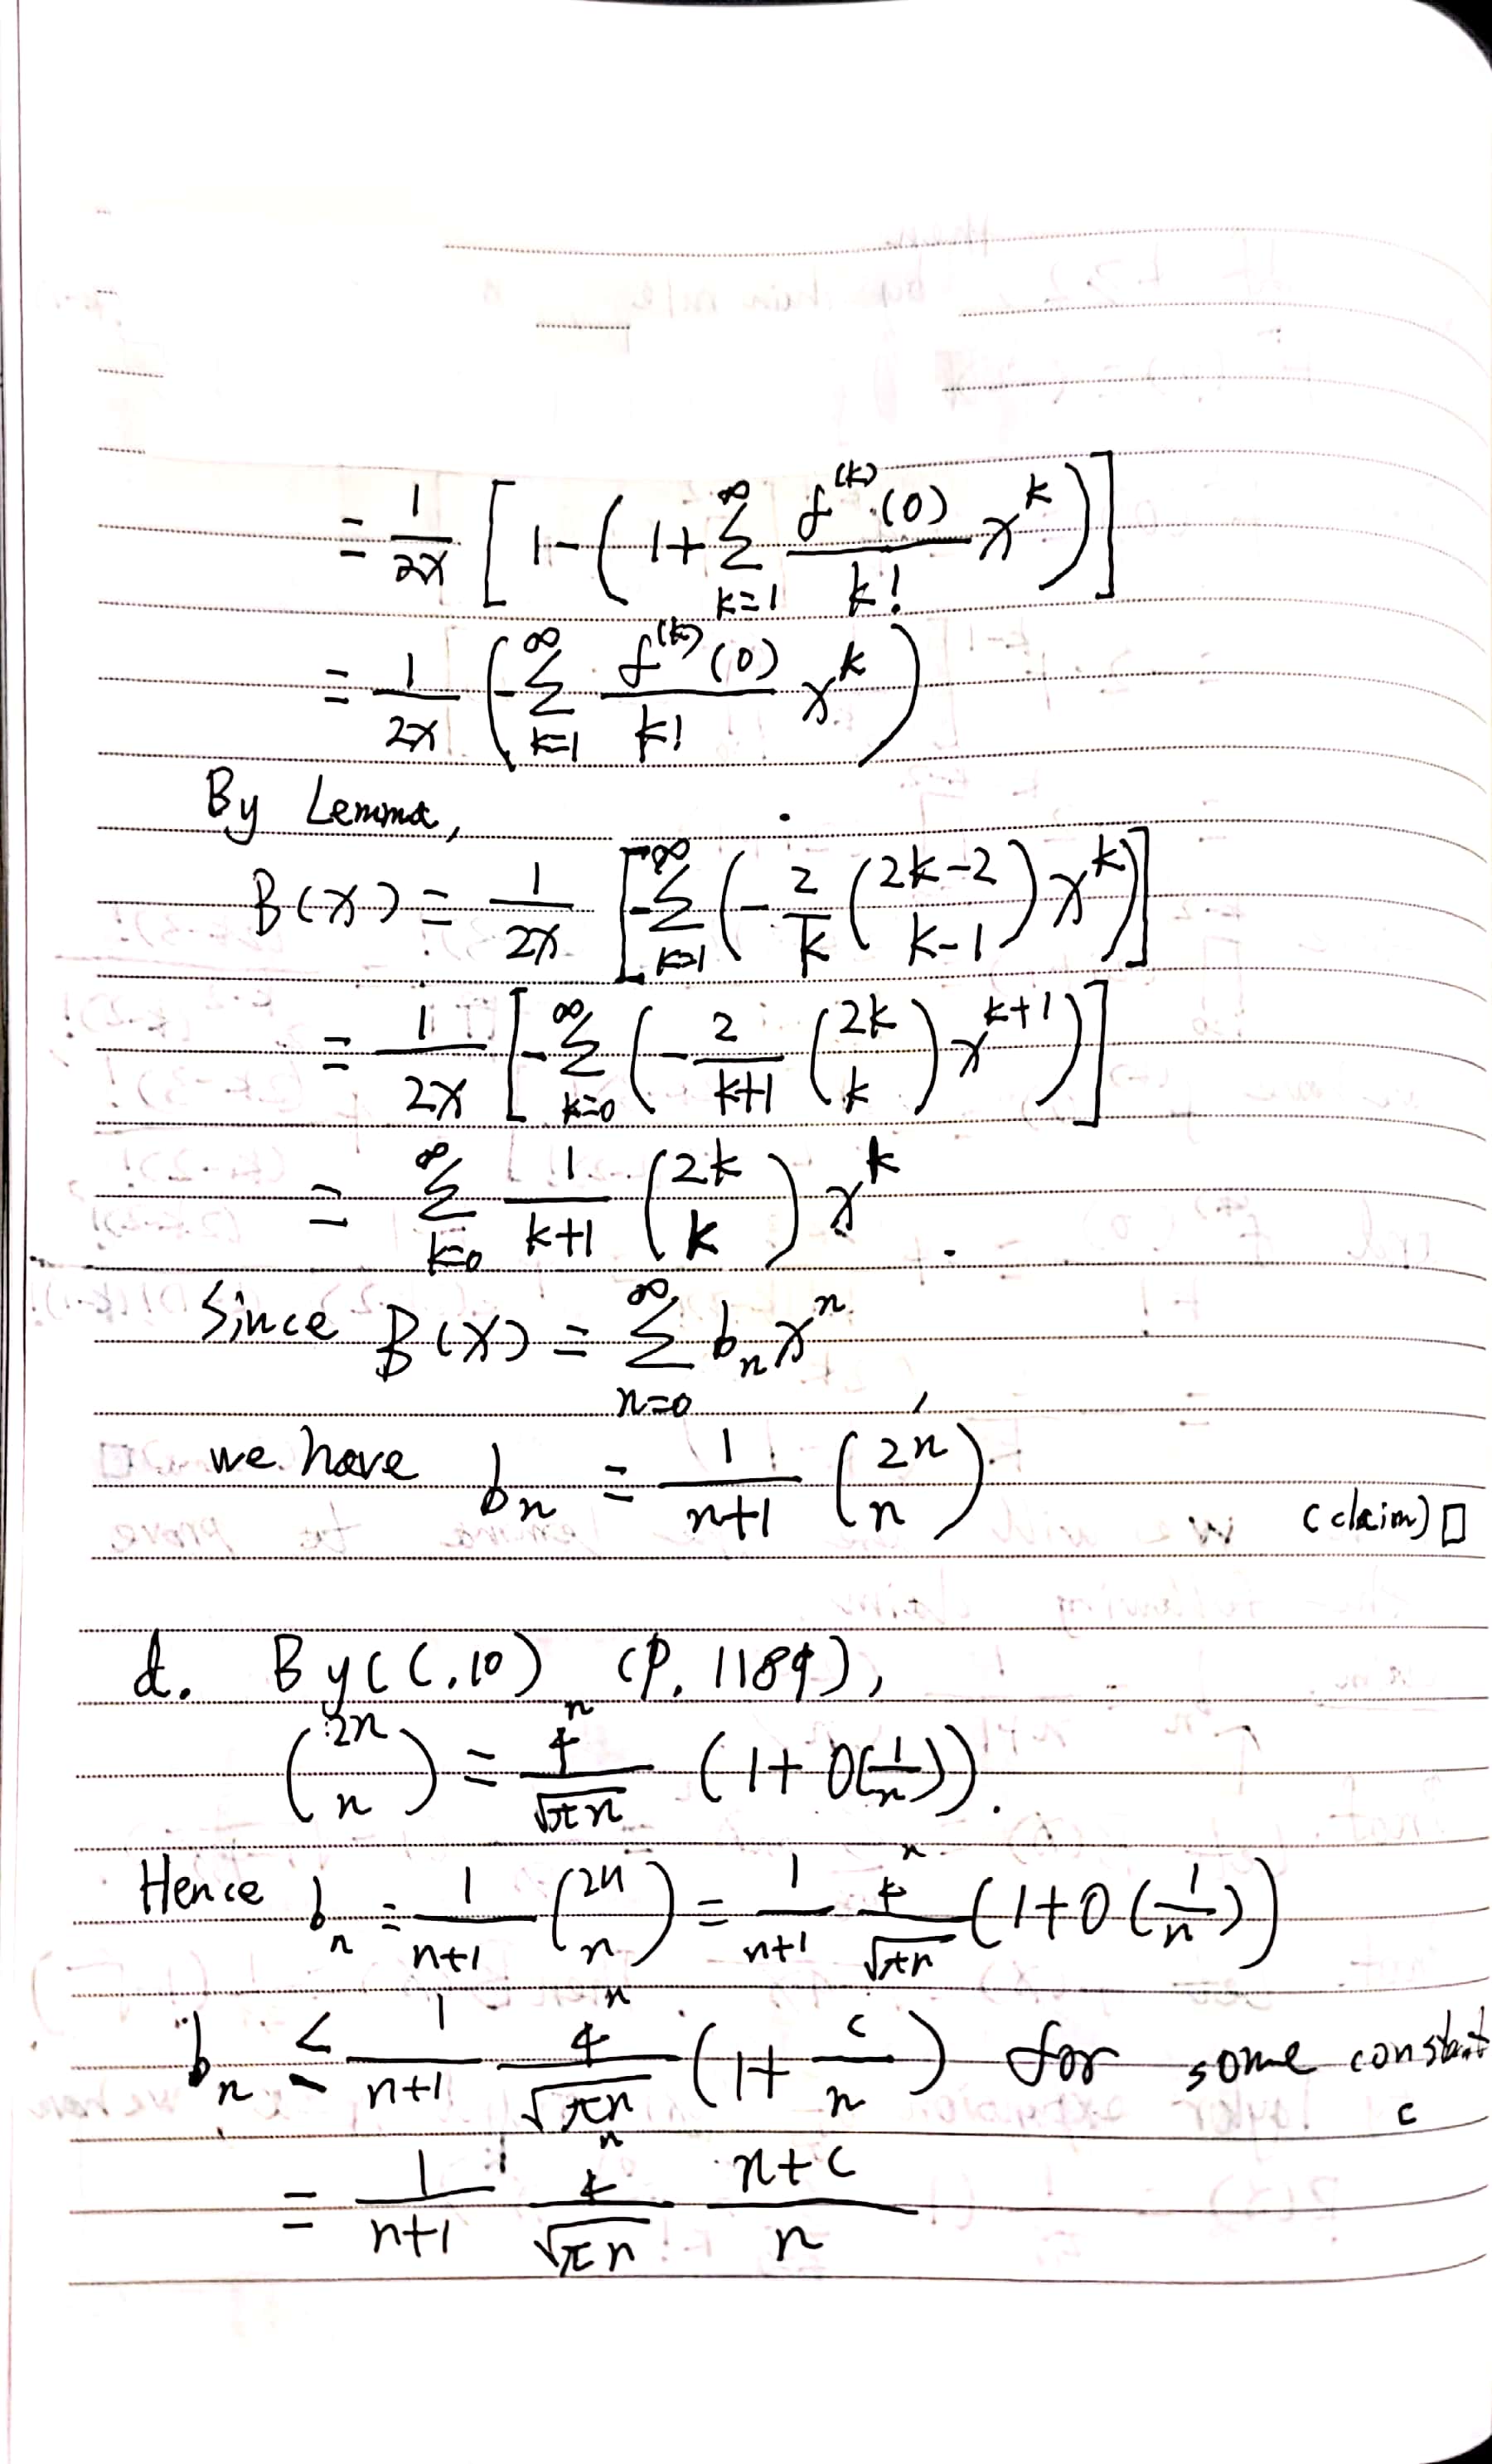 = \frac{1}{2x} [ 1 - ( 1 + \sum_{k=1}^{\infty} \frac{f^{(k)}(0)}{k!} x^k ) ]
= \frac{1}{2x} ( -\sum_{k=1}^{\infty} \frac{f^{(k)}(0)}{k!} x^k )
By Lemma,
B(x) = \frac{1}{2x} [ -\sum_{k=1}^{\infty} ( -\frac{2}{k} \binom{2k-2}{k-1} x^k ) ]
= \frac{1}{2x} [ -\sum_{k=0}^{\infty} ( -\frac{2}{k+1} \binom{2k}{k} x^{k+1} ) ]
= \sum_{k=0}^{\infty} \frac{1}{k+1} \binom{2k}{k} x^k .
Since B(x) = \sum_{n=0}^{\infty} b_n x^n ,
we have b_n = \frac{1}{n+1} \binom{2n}{n} (claim) □
d. By (C.10) (P. 1189),
\binom{2n}{n} = \frac{4^n}{\sqrt{\pi n}} (1 + O(\frac{1}{n})).
Hence b_n = \frac{1}{n+1} \binom{2n}{n} = \frac{1}{n+1} \frac{4^n}{\sqrt{\pi n}} (1 + O(\frac{1}{n}))
b_n \leq \frac{1}{n+1} \frac{4^n}{\sqrt{\pi n}} (1 + \frac{c}{n}) for some constant c
= \frac{1}{n+1} \frac{4^n}{\sqrt{\pi n}} \frac{n+c}{n}